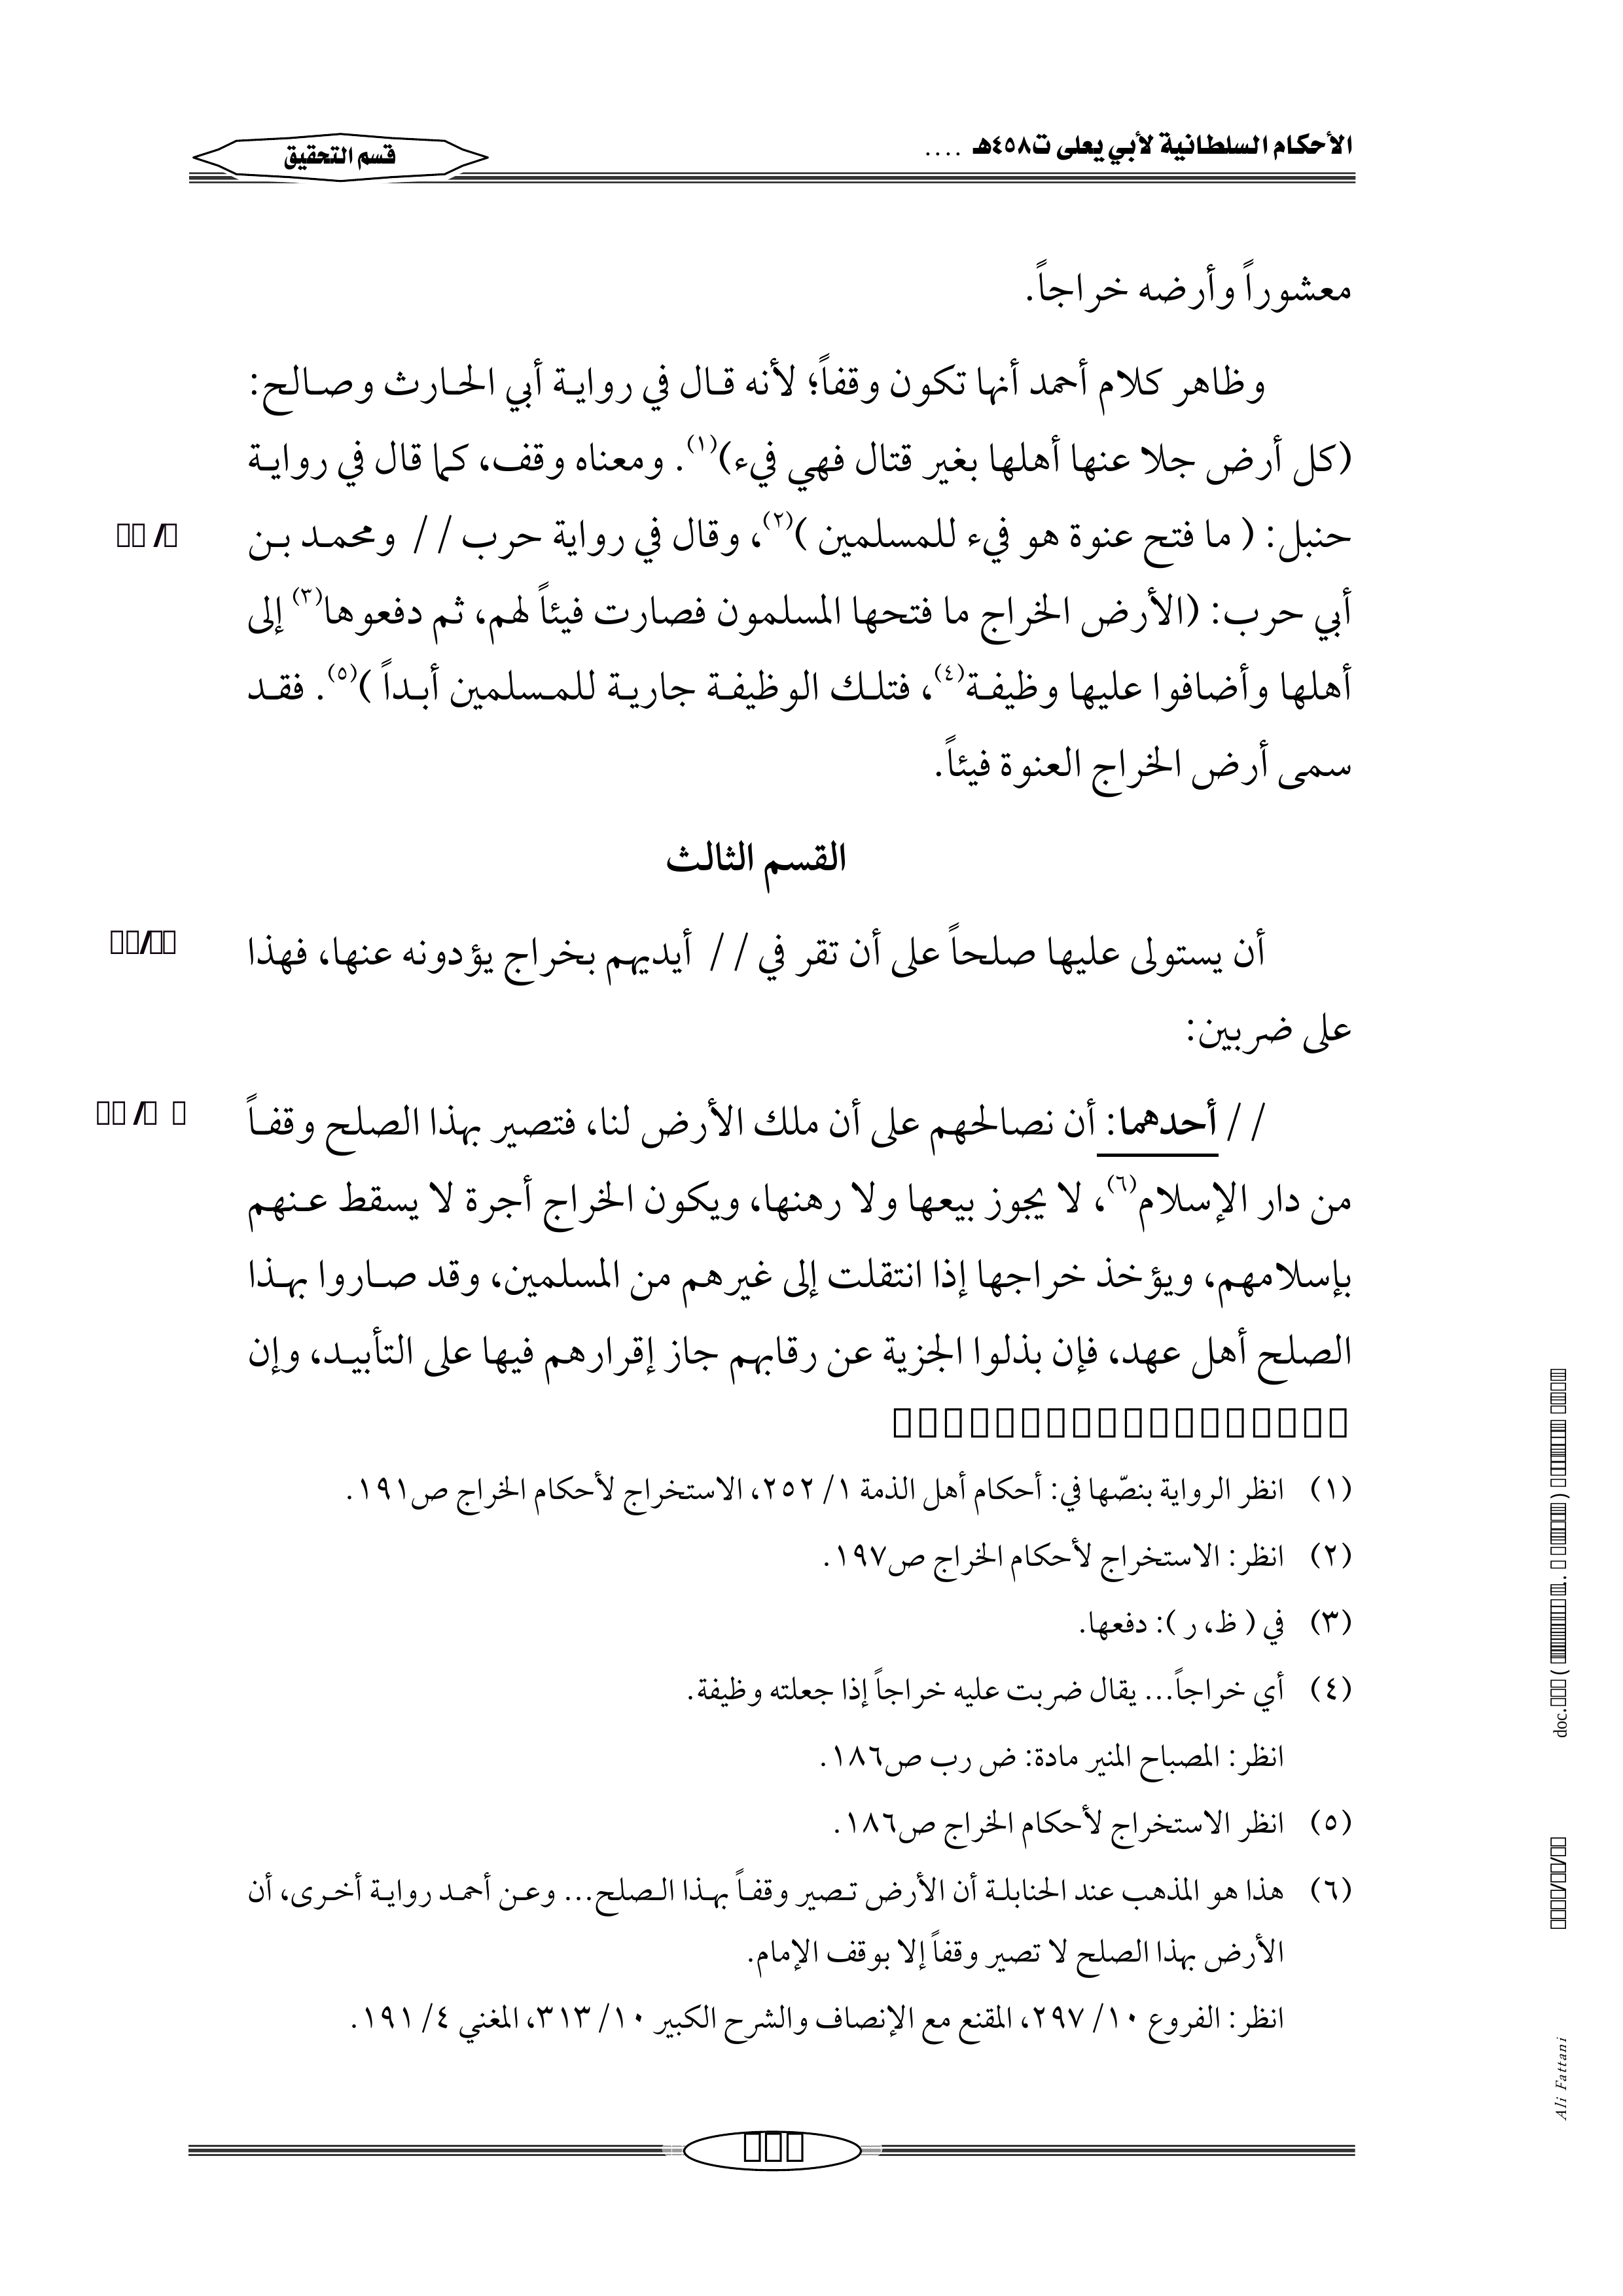 الأحكام السلطانية لأبي يعلى ت٤٥٨هـ ....
قسم التحقيق
معشوراً وأرضه خراجاً.
وظاهر كلام أحمد أنها تكون وقفاً؛ لأنه قال في رواية أبي الحارث وصالح:
(كل أرض جلا عنها أهلها بغير قتال فهي فيء)(١). ومعناه وقف، كما قال في رواية
حنبل: ( ما فتح عنوة هو فيء للمسلمين )(٢)، وقال في رواية حرب // ومحمد بن
أبي حرب: (الأرض الخراج ما فتحها المسلمون فصارت فيئاً لهم، ثم دفعوها(٣) إلى
أهلها وأضافوا عليها وظيفة(٤)، فتلك الوظيفة جارية للمسلمين أبداً )(٥). فقد
سمى أرض الخراج العنوة فيئاً.
القسم الثالث
أن يستولى عليها صلحاً على أن تقر في // أيديهم بخراج يؤدونه عنها، فهذا
على ضربين:
// أحدهما: أن نصالحهم على أن ملك الأرض لنا، فتصير بهذا الصلح وقفاً
من دار الإسلام(٦)، لا يجوز بيعها ولا رهنها، ويكون الخراج أجرة لا يسقط عنهم
بإسلامهم، ويؤخذ خراجها إذا انتقلت إلى غيرهم من المسلمين، وقد صاروا بهذا
الصلح أهل عهد، فإن بذلوا الجزية عن رقابهم جاز إقرارهم فيها على التأبيد، وإن
(١) انظر الرواية بنصّها في: أحكام أهل الذمة ١/ ٢٥٢، الاستخراج لأحكام الخراج ص١٩١.
(٢) انظر: الاستخراج لأحكام الخراج ص١٩٧.
(٣) في ( ظ، ر ): دفعها.
(٤) أي خراجاً... يقال ضربت عليه خراجاً إذا جعلته وظيفة.
انظر: المصباح المنير مادة: ض رب ص١٨٦.
(٥) انظر الاستخراج لأحكام الخراج ص١٨٦.
(٦) هذا هو المذهب عند الحنابلة أن الأرض تصير وقفاً بهذا الصلح... وعن أحمد رواية أخرى، أن
الأرض بهذا الصلح لا تصير وقفاً إلا بوقف الإمام.
انظر: الفروع ١٠/ ٢٩٧، المقنع مع الإنصاف والشرح الكبير ١٠/ ٣١٣، المغني ٤/ ١٩١.
doc.
Ali Fattani